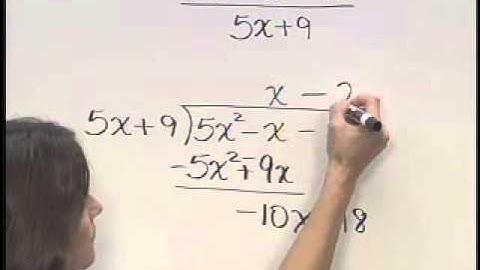 5x+9
x - 2
5x+9)5x² - x -
-5x² + 9x
-10x 18